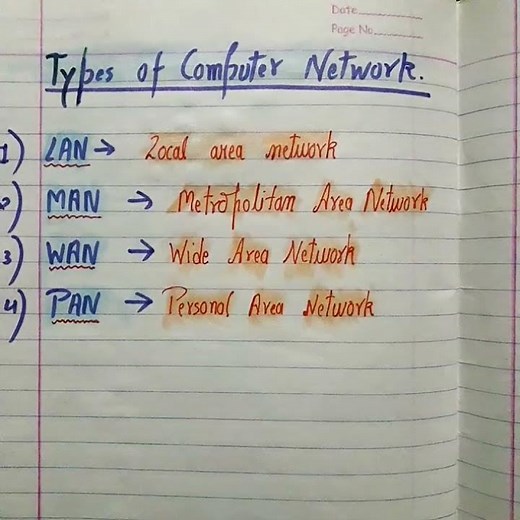 Date
Page No.
Types of Computer Network.
1) LAN → Local area network
2) MAN → Metropolitan Area Network
3) WAN → Wide Area Network
4) PAN → Personal Area Network